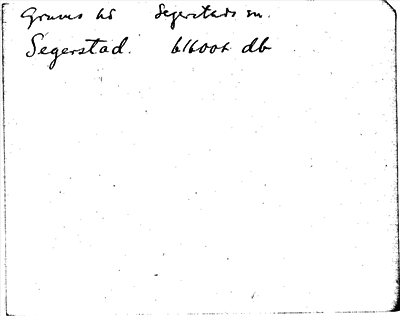 Graves hs Segerstads sn.
Segerstad. 616002 db